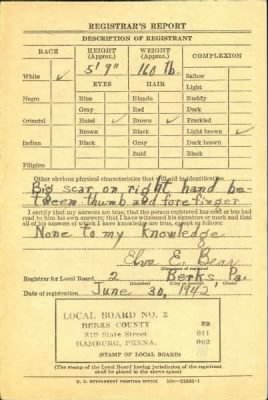 REGISTRAR'S REPORT
DESCRIPTION OF REGISTRANT
RACE HEIGHT (Approx.) WEIGHT (Approx.) COMPLEXION
5' 9" 160 lb.
White ✓ EYES HAIR Sallow
Light
Negro Blue Blonde Ruddy
Gray Red Dark
Oriental Hazel ✓ Brown ✓ Freckled
Brown Black Light brown ✓
Indian Black Gray Dark brown
Bald Black
Filipino
Other obvious physical characteristics that will aid in identification
Big scar on right hand be-
tween thumb and forefinger
I certify that my answers are true; that the person registered has read or has had
read to him his own answers; that I have witnessed his signature or mark and that
all of his answers of which I have knowledge are true, except as follows:
None to my knowledge
Elva E. Bear
(Signature of registrar)
Registrar for Local Board 2 Berks, Pa.
(Number) (City or county) (State)
Date of registration June 30, 1942
LOCAL BOARD NO. 2
BERKS COUNTY 52
State Street 011
HAMBURG, PENNA. 002
(STAMP OF LOCAL BOARD)
(The stamp of the Local Board having jurisdiction of the registrant
shall be placed in the above space)
U. S. GOVERNMENT PRINTING OFFICE 16—21630-1